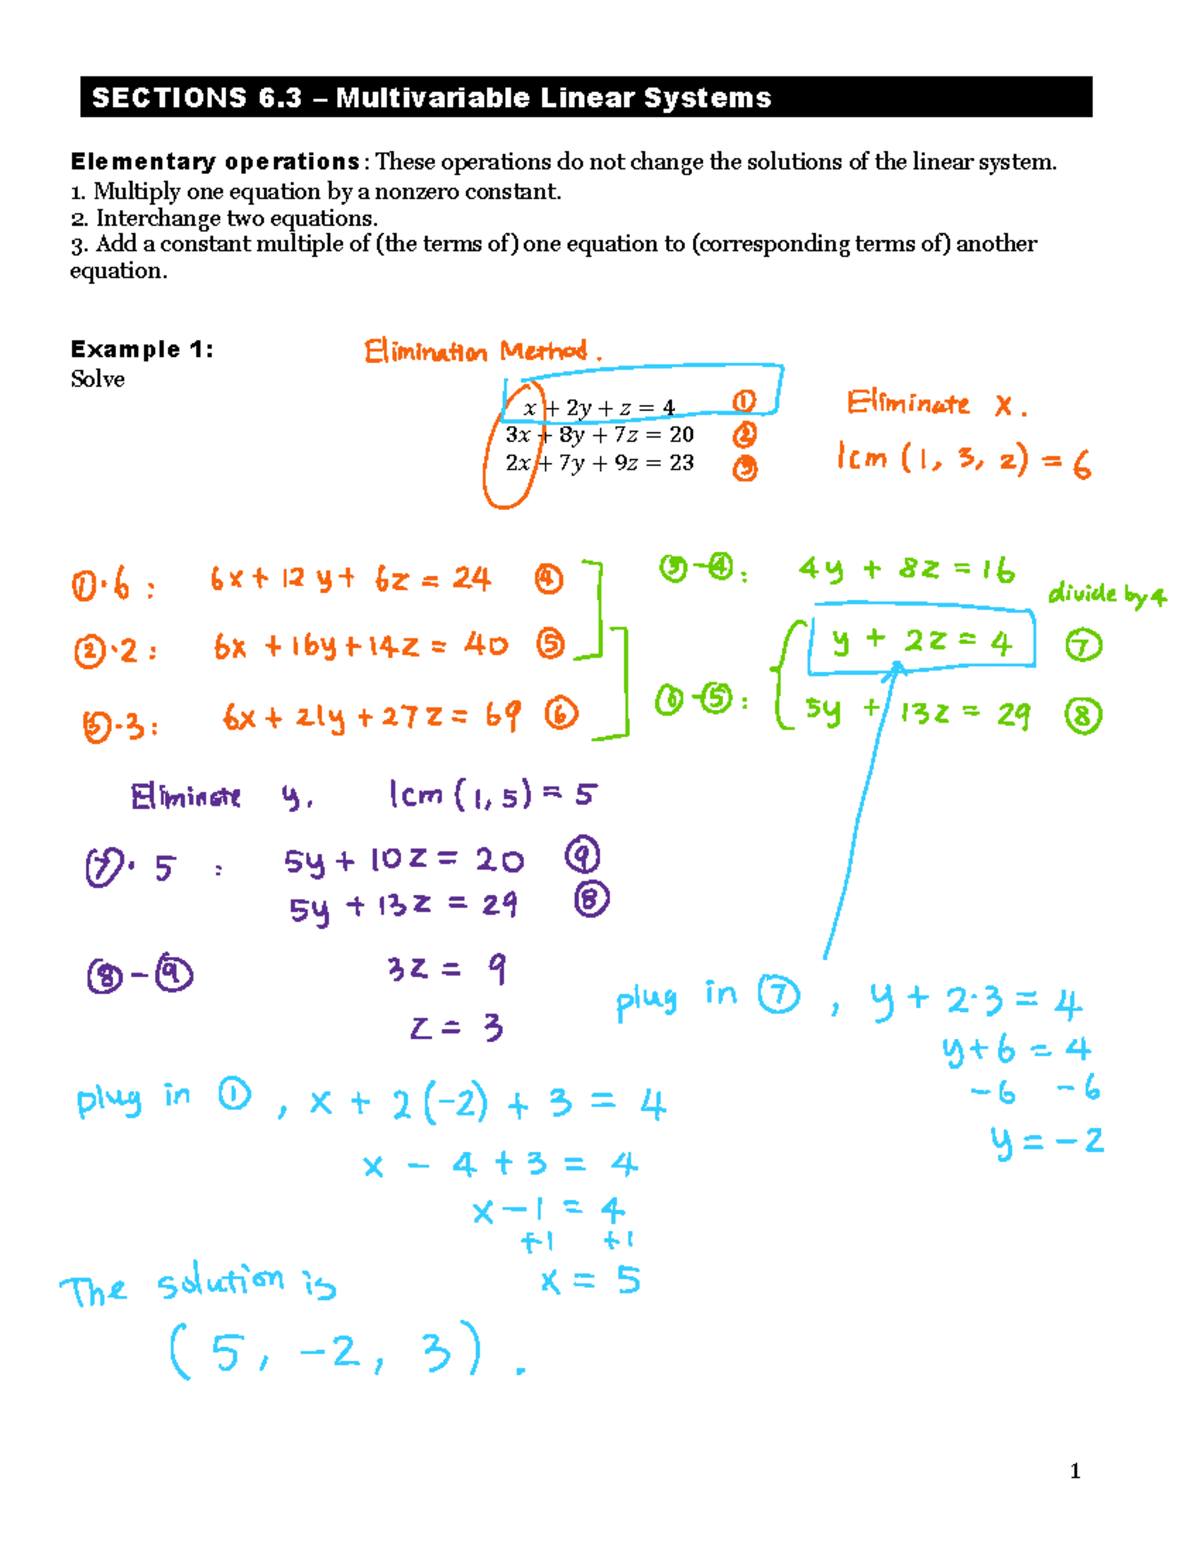 SECTIONS 6.3 – Multivariable Linear Systems
Elementary operations: These operations do not change the solutions of the linear system.
1. Multiply one equation by a nonzero constant.
2. Interchange two equations.
3. Add a constant multiple of (the terms of) one equation to (corresponding terms of) another
equation.
Example 1:
Elimination Method.
Solve
x + 2y + z = 4 ①
3x + 8y + 7z = 20 ②
2x + 7y + 9z = 23 ③
Eliminate x.
lcm (1, 3, 2) = 6
①·6: 6x + 12y + 6z = 24 ④
②·2: 6x + 16y + 14z = 40 ⑤
③·3: 6x + 21y + 27z = 69 ⑥
⑤-④: 4y + 8z = 16
divide by 4
y + 2z = 4 ⑦
⑥-⑤: 5y + 13z = 29 ⑧
Eliminate y. lcm (1, 5) = 5
⑦· 5 : 5y + 10z = 20 ⑨
5y + 13z = 29 ⑧
⑧-⑨ 3z = 9
z = 3
plug in ⑦, y + 2·3 = 4
y + 6 = 4
-6 -6
y = -2
plug in ①, x + 2(-2) + 3 = 4
x - 4 + 3 = 4
x - 1 = 4
+1 +1
x = 5
The solution is
(5, -2, 3).
1